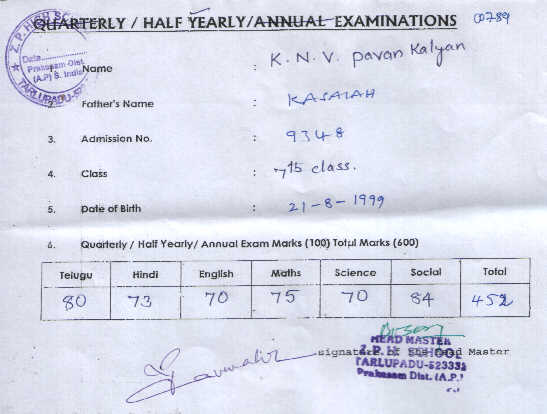 QUARTERLY / HALF YEARLY/ANNUAL EXAMINATIONS 00789
Z.P. HIGH SC
Date
Prakasam Dist.
(A.P) S. India
TARLUPADU-523
1. Name : K. N. V. pavan Kalyan
2. Father's Name : KASAIAH
3. Admission No. : 9348
4. Class : 7th class.
5. Date of Birth : 21-8-1999
6. Quarterly / Half Yearly/ Annual Exam Marks (100) Total Marks (600)
Telugu Hindi English Maths Science Social Total
80 73 70 75 70 84 452
signature of the Head Master
HEAD MASTER
Z. P. H. SCHOOL
TARLUPADU-523332
Prakasam Dist. (A.P.)